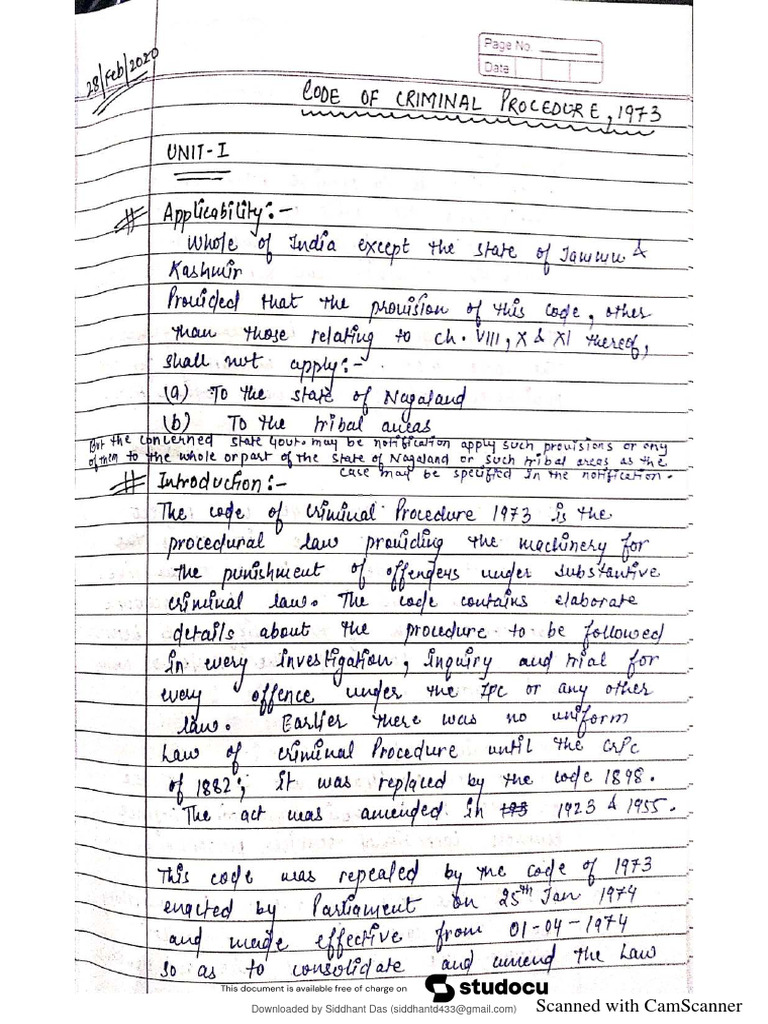 Page No.
Date
28/Feb/2020
CODE OF CRIMINAL PROCEDURE, 1973
UNIT-I
# Applicability:-
Whole of India except the state of Jammu &
Kashmir
Provided that the provision of this code, other
than those relating to ch. VIII, X & XI thereof,
shall not apply:-
(a) To the state of Nagaland
(b) To the tribal areas
But the concerned state Govt. may be notification apply such provisions or any
of them to the whole or part of the state of Nagaland or such tribal areas as the
case may be specified in the notification.
# Introduction:-
The code of criminal Procedure 1973 is the
procedural law providing the machinery for
the punishment of offenders under substantive
criminal law. The code contains elaborate
details about the procedure to be followed
in every investigation, inquiry and trial for
every offence under the Ipc or any other
law. Earlier there was no uniform
Law of criminal Procedure until the CrPc
of 1882; it was replaced by the code 1898.
The act was amended in 193 1923 & 1955.
This code was repealed by the code of 1973
enacted by Parliament on 25th Jan 1974
and made effective from 01-04-1974
so as to consolidate and amend the Law
This document is available free of charge on studocu
Downloaded by Siddhant Das (siddhantd433@gmail.com)
Scanned with CamScanner